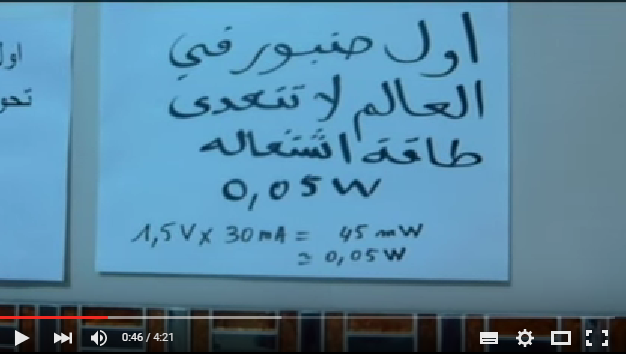 اول صنبور في
العالم لا تتعدى
طاقة اشتغاله
0,05 W
1,5 V x 30 mA = 45 mW
≃ 0,05 W
اول
تحو
0:46 / 4:21